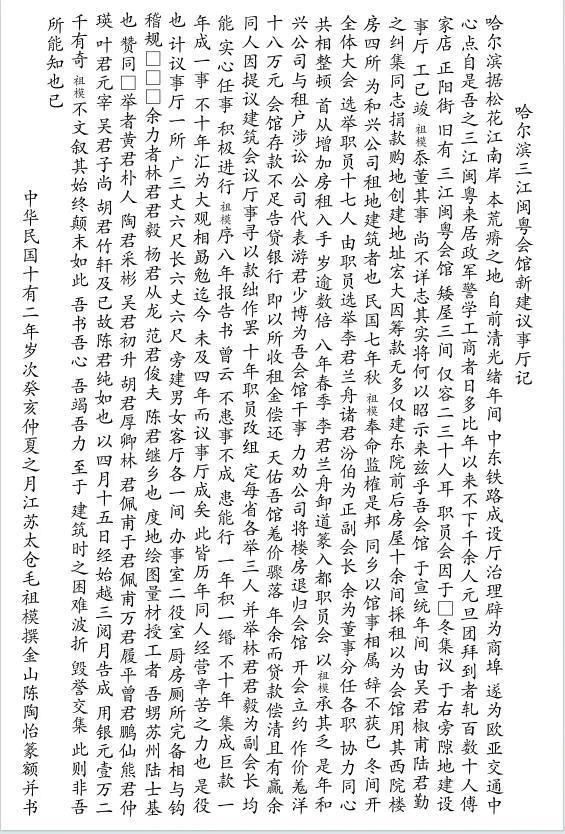 哈尔滨三江闽粤会馆新建议事厅记
哈尔滨据松花江南岸 本荒瘠之地 自前清光绪年间 中东铁路成设厅治理辟为商埠 遂为欧亚交通中
心点自是吾之三江闽粤来居政军警学工商者日多比年以来不下千余人元旦团拜到者轧百数十人傅
家店 正阳街 旧有 三江闽粤会馆 矮屋三间 仅容二三十人耳 职员会因于□冬集议 于右旁隙地建设
事厅 工已竣 祖模忝董其事 尚不详志其实将何以昭示来兹乎吾会馆 于宣统年间 由吴君椒甫陆君勤
之纠集同志捐款购地创建地址宏大因筹款无多仅建东院前后房屋十余间採租以为会馆用其西院楼
房四所 为和兴公司租地建筑者也 民国七年秋 祖模奉命监榷是邦 同乡以馆事相属 辞不获已 冬间开
全体大会 选举职员十七人 由职员选举李君兰舟诸君汾伯为正副会长 余为董事分任各职 协力同心
共相整顿 首从增加房租入手 岁逾数倍 八年春季 李君兰舟卸道篆入都职员会 以祖模承其乏 是年和
兴公司与租户涉讼 公司代表游君少博为吾会馆干事 力劝公司将楼房退归会馆 开会立约 作价羗洋
十八万元 会馆存款不足告贷银行 即以所收租金偿还 天佑吾馆羗价骤落 年余而贷款偿清且有赢余
同人因提议建筑会议厅事寻以款绌作罢 十年职员改组 定每省各举三人 并举林君君毅为副会长 均
能 实心任事 积极进行 祖模序八年报告书 曾云 不患事不成 患能行 一年积一缗 不十年 集成巨款 一
年成一事 不十年汇为大观相勗勉迄今 未及四年而议事厅成矣 此皆历年同人经营辛苦之力也 是役
也 计议事厅一所 广三丈六尺长六丈六尺 旁建男女客厅各一间 办事室二役室 厨房厕所完备相与钩
稽规□□□余力者林君君毅 杨君从龙 范君俊夫 陈君继乡也 度地绘图量材授工者 吾甥苏州陆士基
也 赞同□举者黄君朴人 陶君采彬 吴君初升 胡君厚卿林 君佩甫于君佩甫万君履平曾君鹏仙熊君仲
瑛 叶君元宰 吴君子尚 胡君竹轩及已故陈君纯如也 以四月十五日经始越三阅月告成 用银元壹万二
千有奇 祖模不文叙其始终颠末如此 吾书吾心 吾竭吾力 至于 建筑时之困难波折 毁誉交集 此则非吾
所能知也已
中华民国十有二年岁次癸亥仲夏之月江苏太仓毛祖模撰金山陈陶怡篆额并书